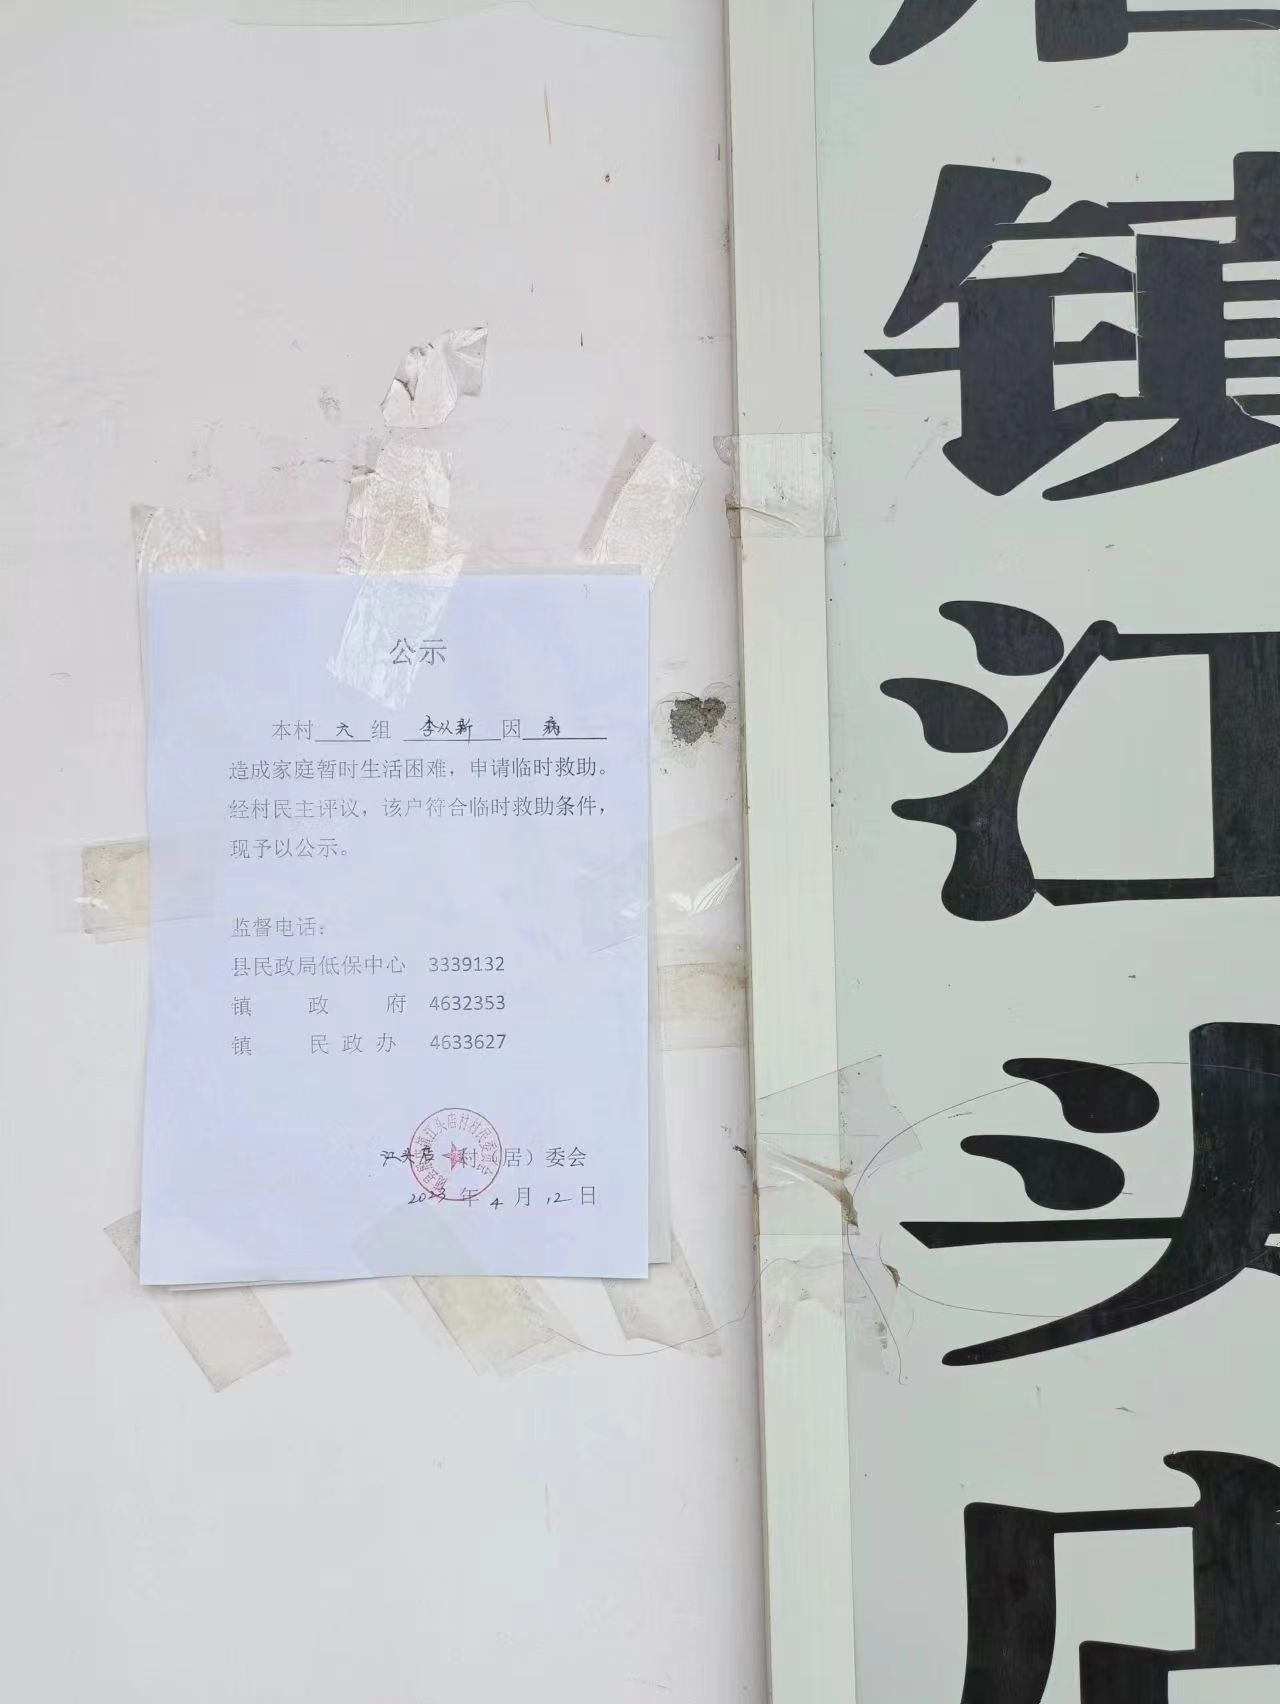 公示
本村 六 组 李从新 因 病
造成家庭暂时生活困难，申请临时救助。
经村民主评议，该户符合临时救助条件，
现予以公示。
监督电话：
县民政局低保中心 3339132
镇 政 府 4632353
镇 民 政 办 4633627
江头店 村（居）委会
2023 年 4 月 12 日
镇
江
头
店